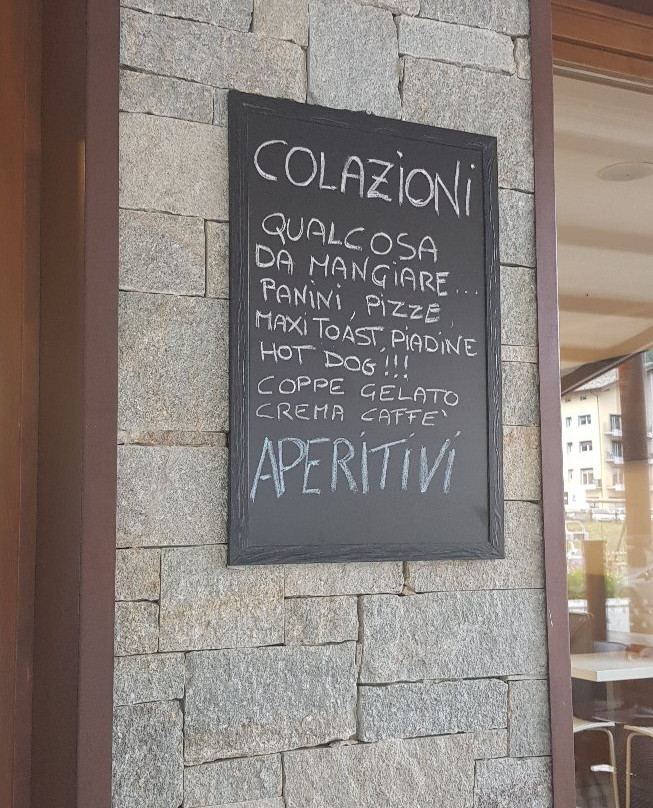 COLAZIONI
QUALCOSA
DA MANGIARE...
PANINI, PIZZE,
MAXI TOAST, PIADINE
HOT DOG!!!
COPPE GELATO
CREMA CAFFE'
APERITIVI